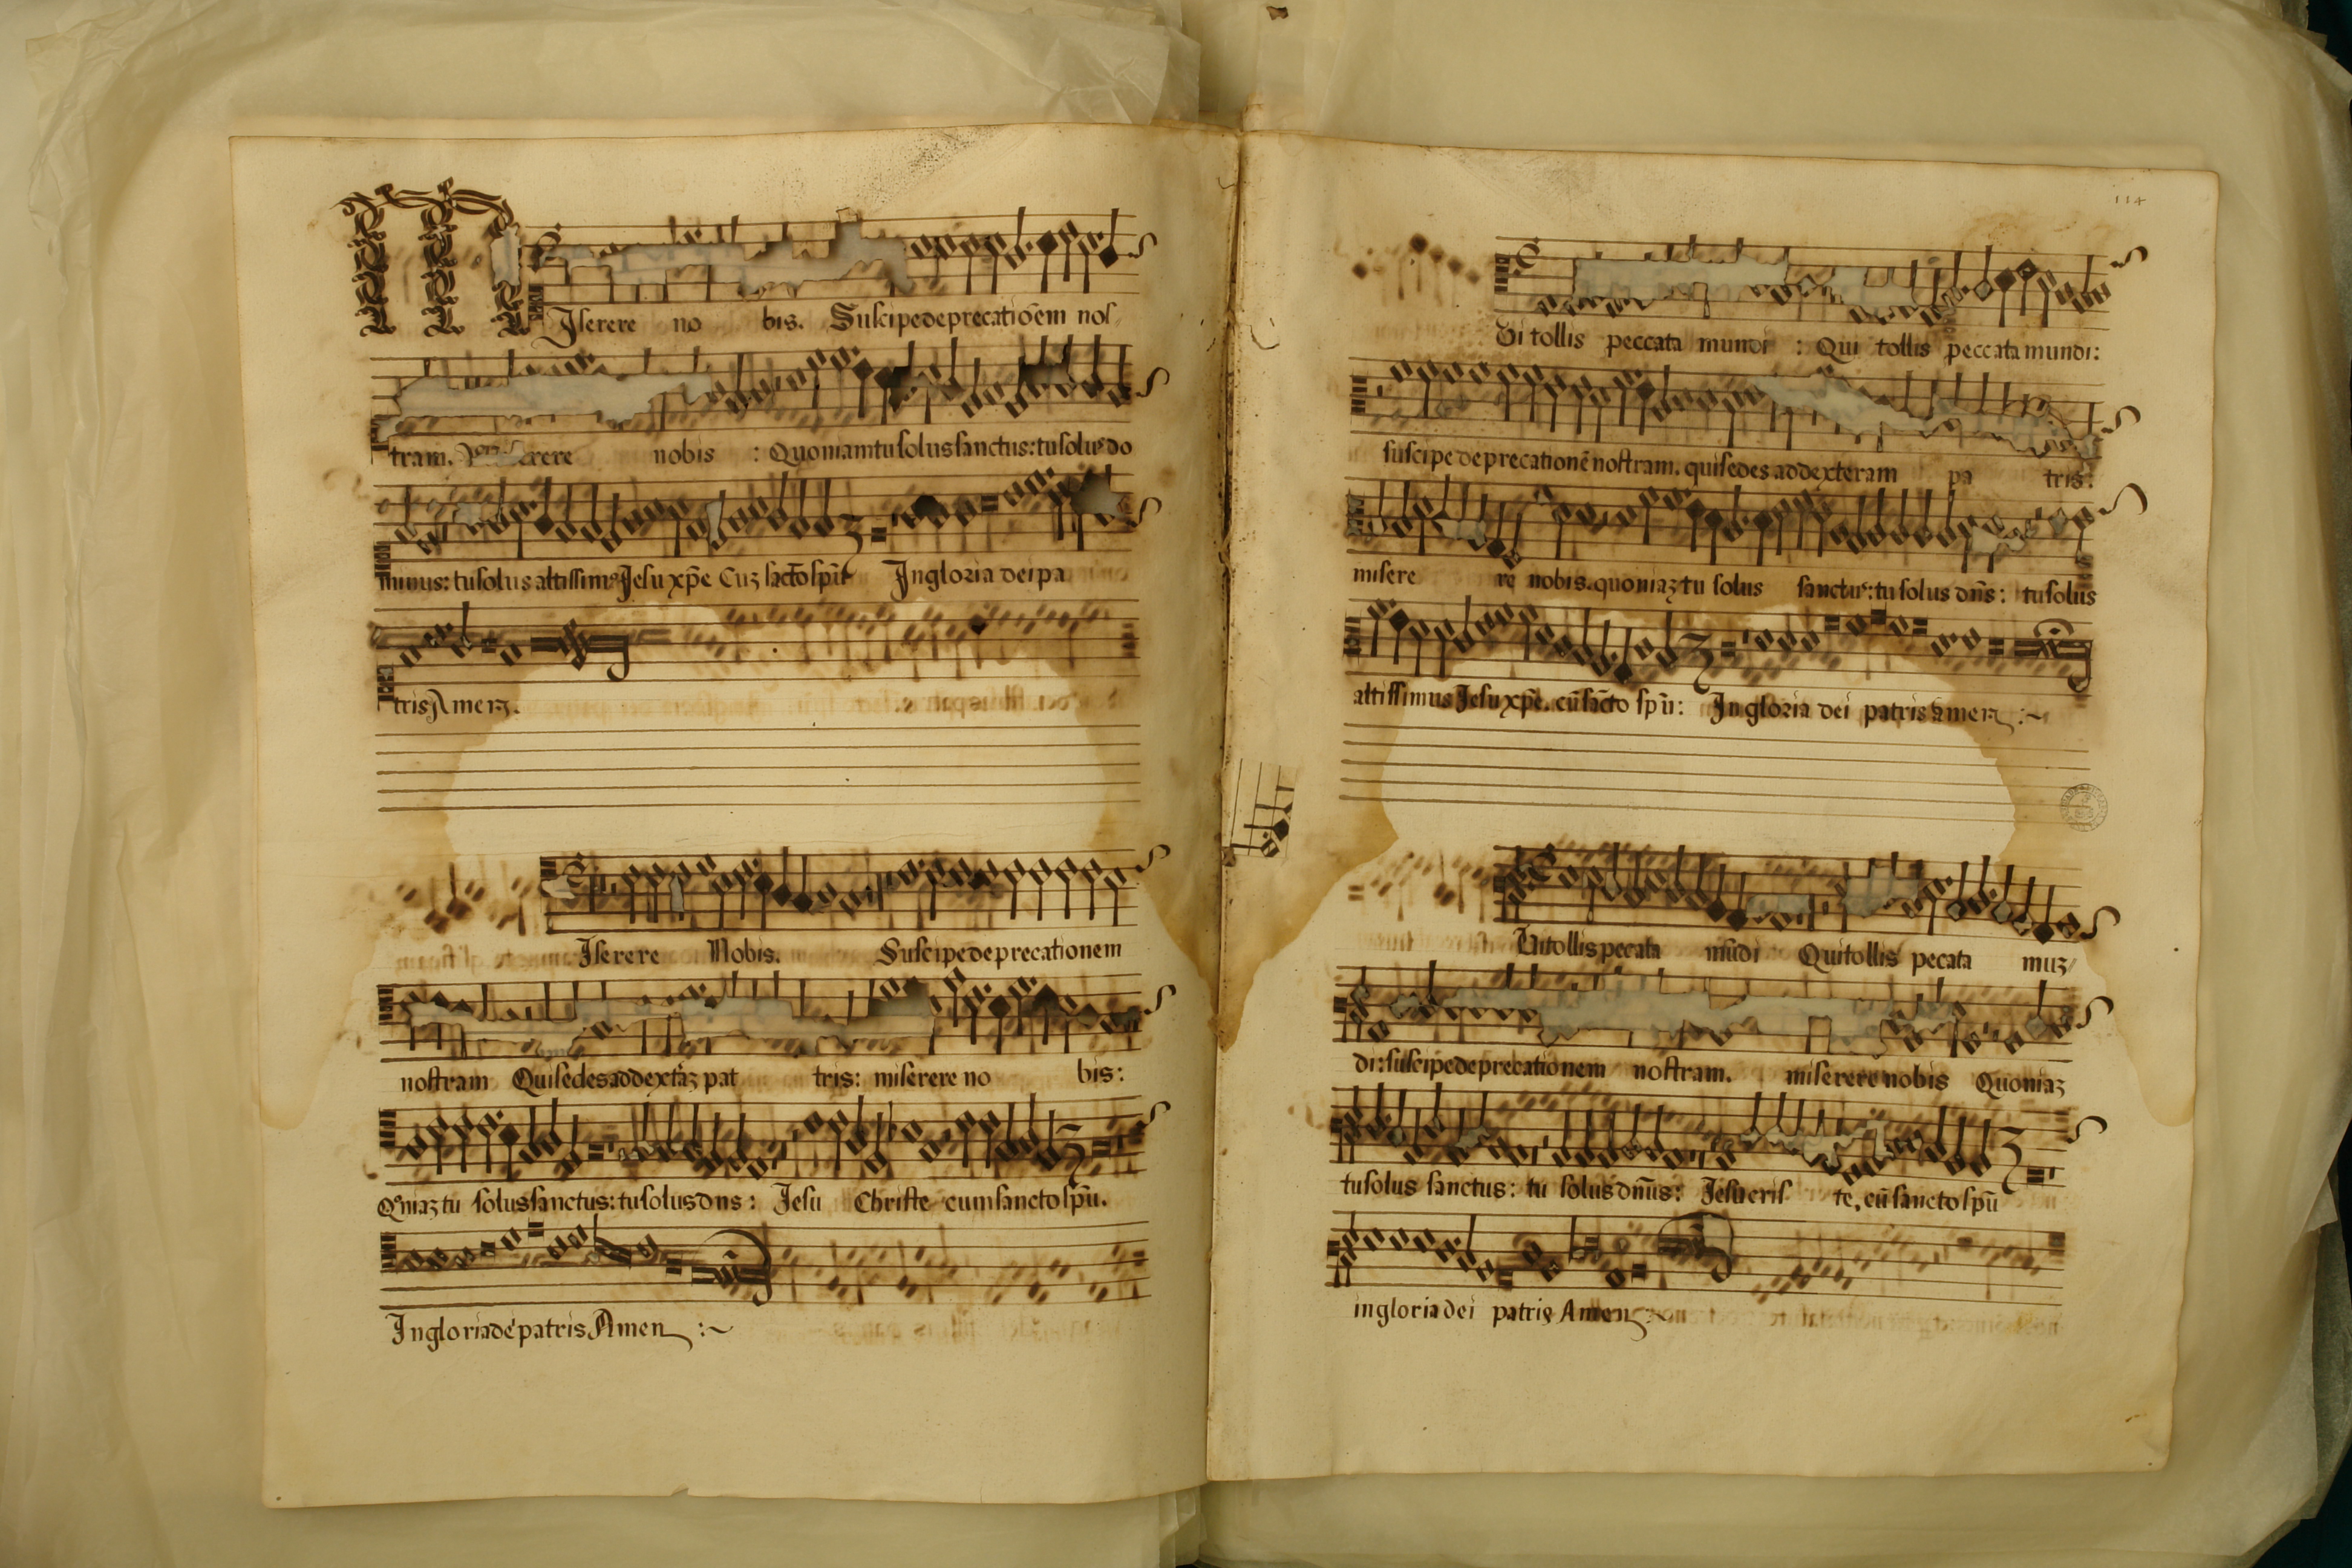 Iserere no bis. Suscipe deprecatiōem nos
tram. nobis : Quoniam tu solus sanctus: tu solus do
minus: tu solus altissimꝰ Jesu xp̄e Cuz sācto sp̄u In gloria dei pa
tris Amen.
Iserere Nobis. Suscipe deprecationem
nostram Qui sedes ad dextāz pat tris: miserere no bis:
Qm̄iaz tu solus sanctus: tu solus dns: Jesu Christe cum sancto sp̄u.
In gloria dei patris Amen :~
114
Vi tollis peccata mundi : Qui tollis peccata mundi:
suscipe deprecationē nostram. qui sedes ad dexteram pa tris:
misere re nobis. quoniaz tu solus sanctus: tu solus dn̄s: tu solus
altissimus Jesu xp̄e. cū sācto sp̄u: In gloria dei patris amen :~
Ui tollis pecata mūdi Qui tollis pecata muz/
di: suscipe deprecationem nostram. miserere nobis Quoniaz
tu solus sanctus: tu solus dn̄us: Jesu cris te. cū sancto sp̄u
in gloria dei patris Amen :~